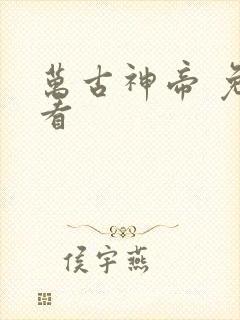 萬古神帝 免
看
侯宇燕